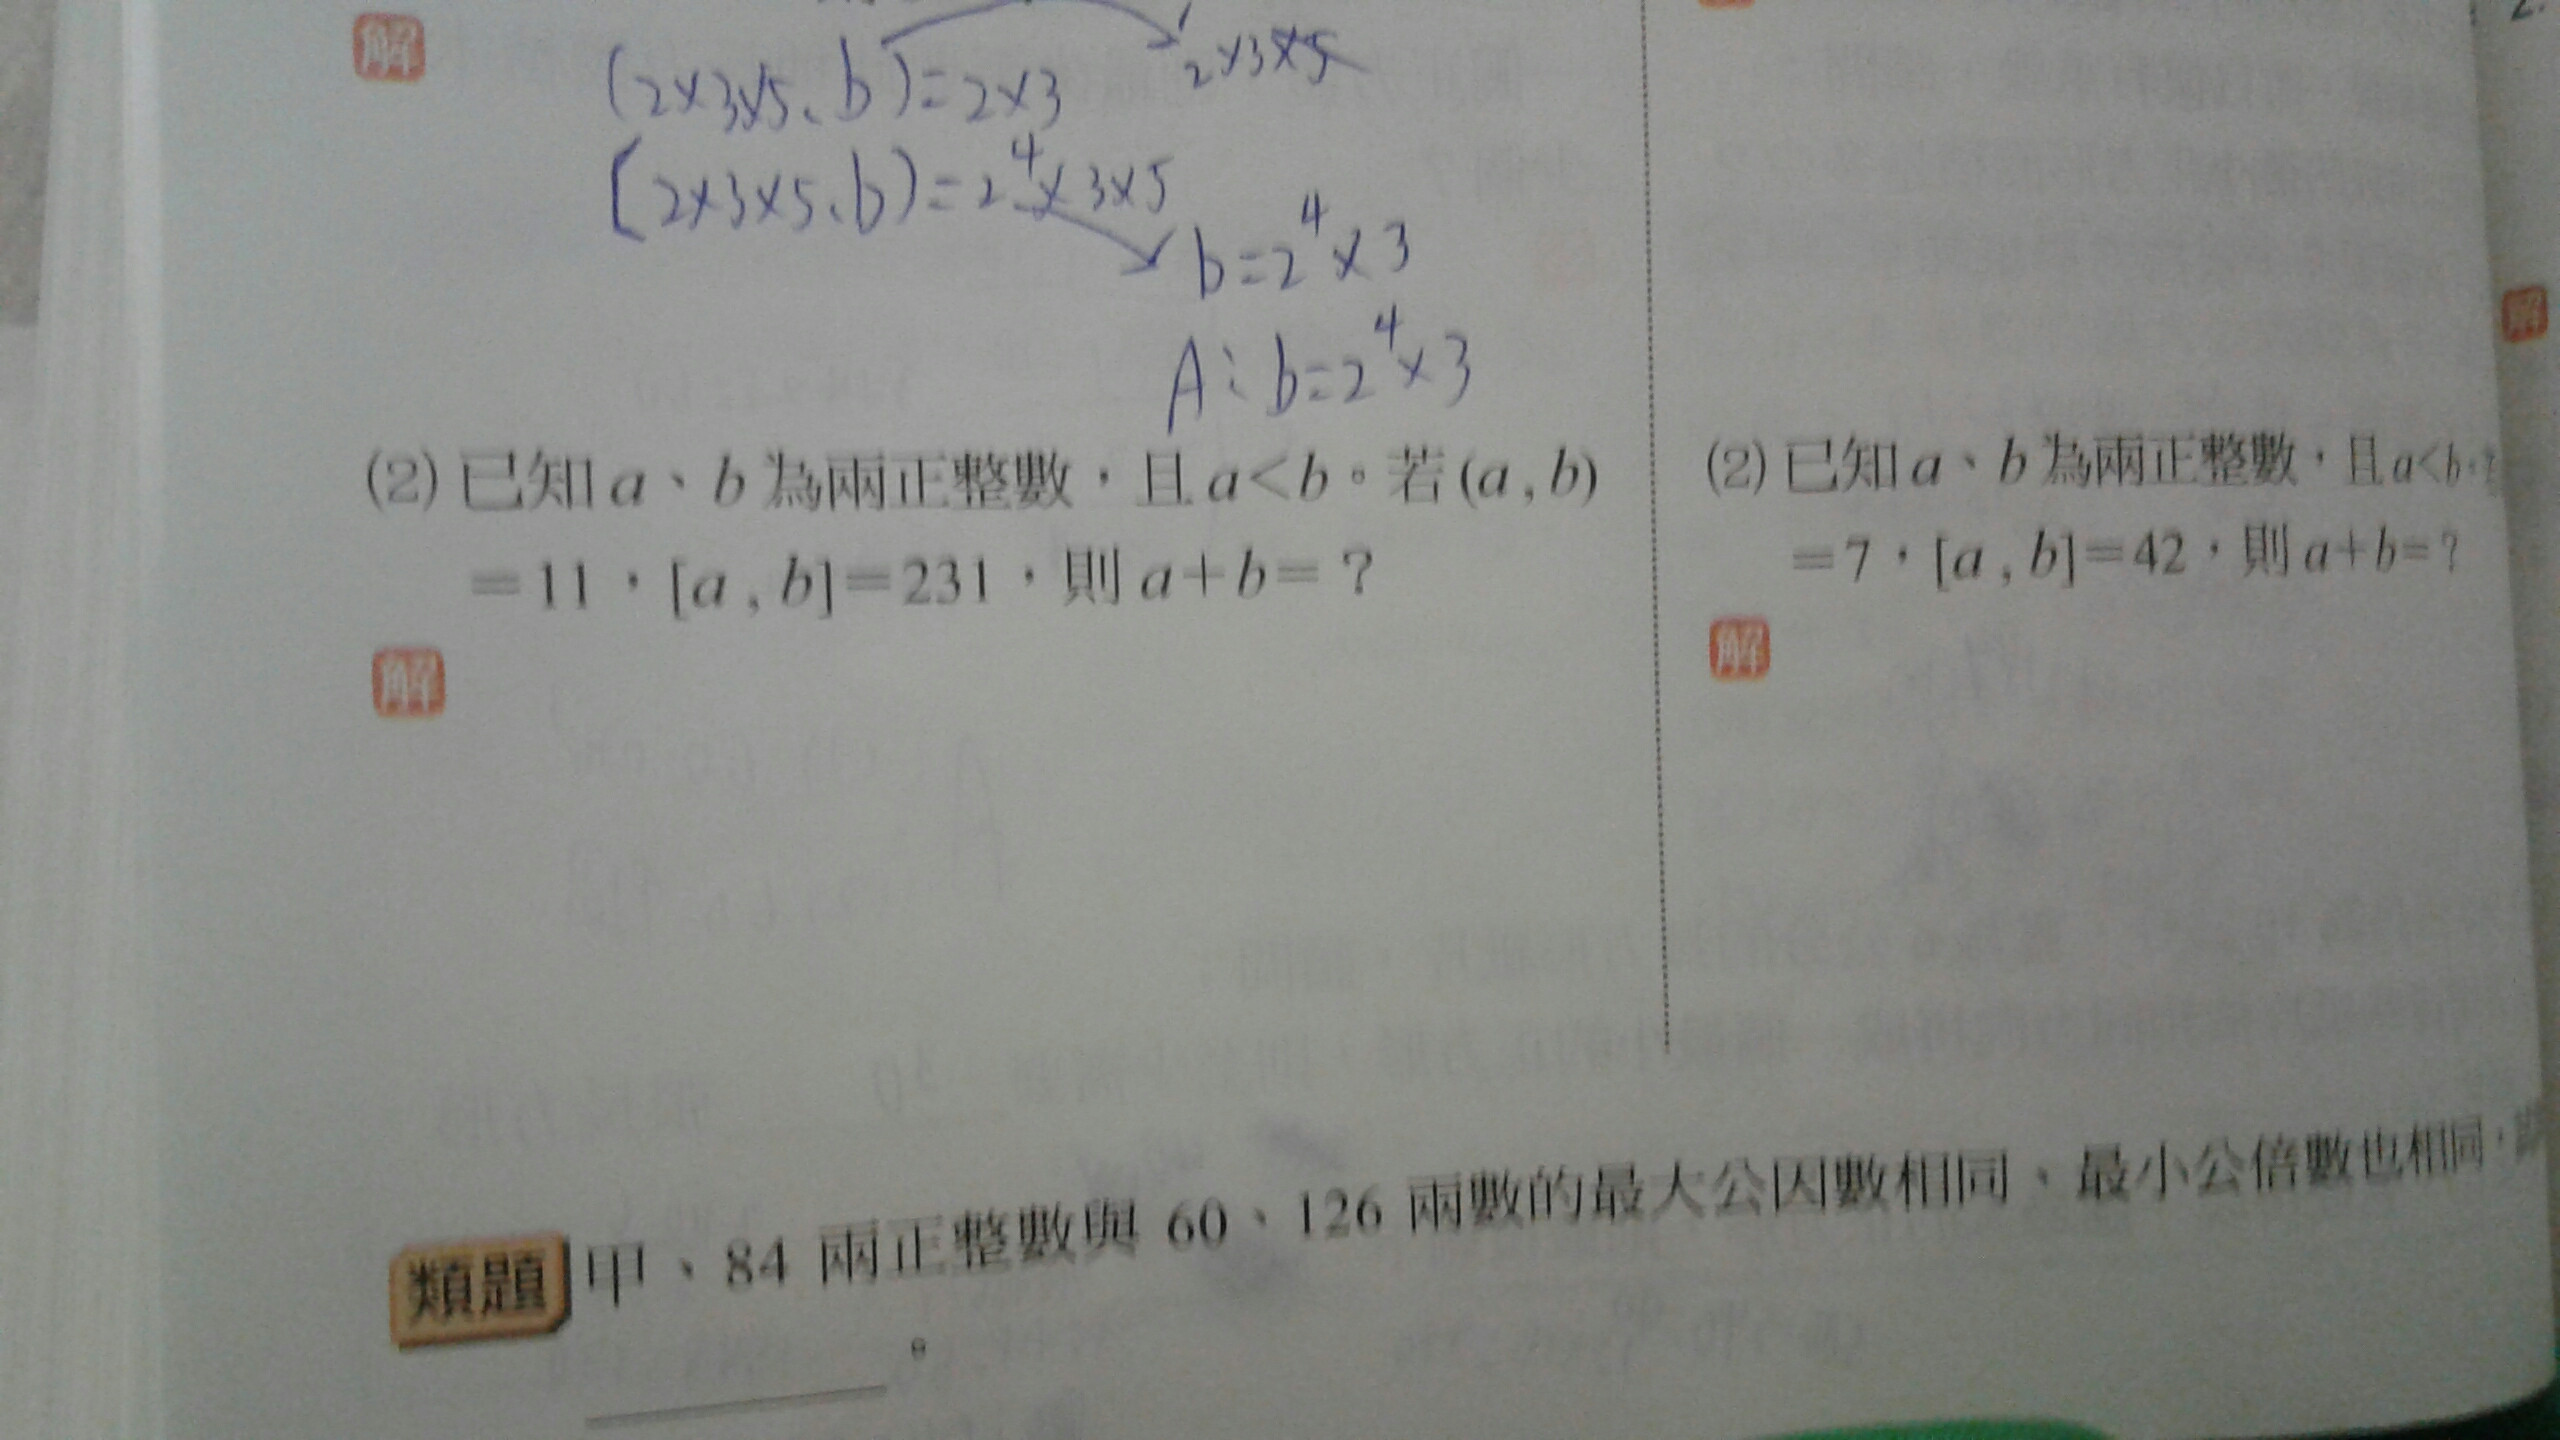 解
(2×3×5、b)=2×3
2×3×5
[2×3×5、b)=2⁴×3×5
b=2⁴×3
A:b=2⁴×3
(2) 已知 a、b 為兩正整數,且 a<b。若 (a , b)
=11,[a , b]=231,則 a+b=?
解
(2) 已知 a、b 為兩正整數,且 a<b。
=7,[a , b]=42,則 a+b=?
解
解
類題 甲、84 兩正整數與 60、126 兩數的最大公因數相同、最小公倍數也相同,
。